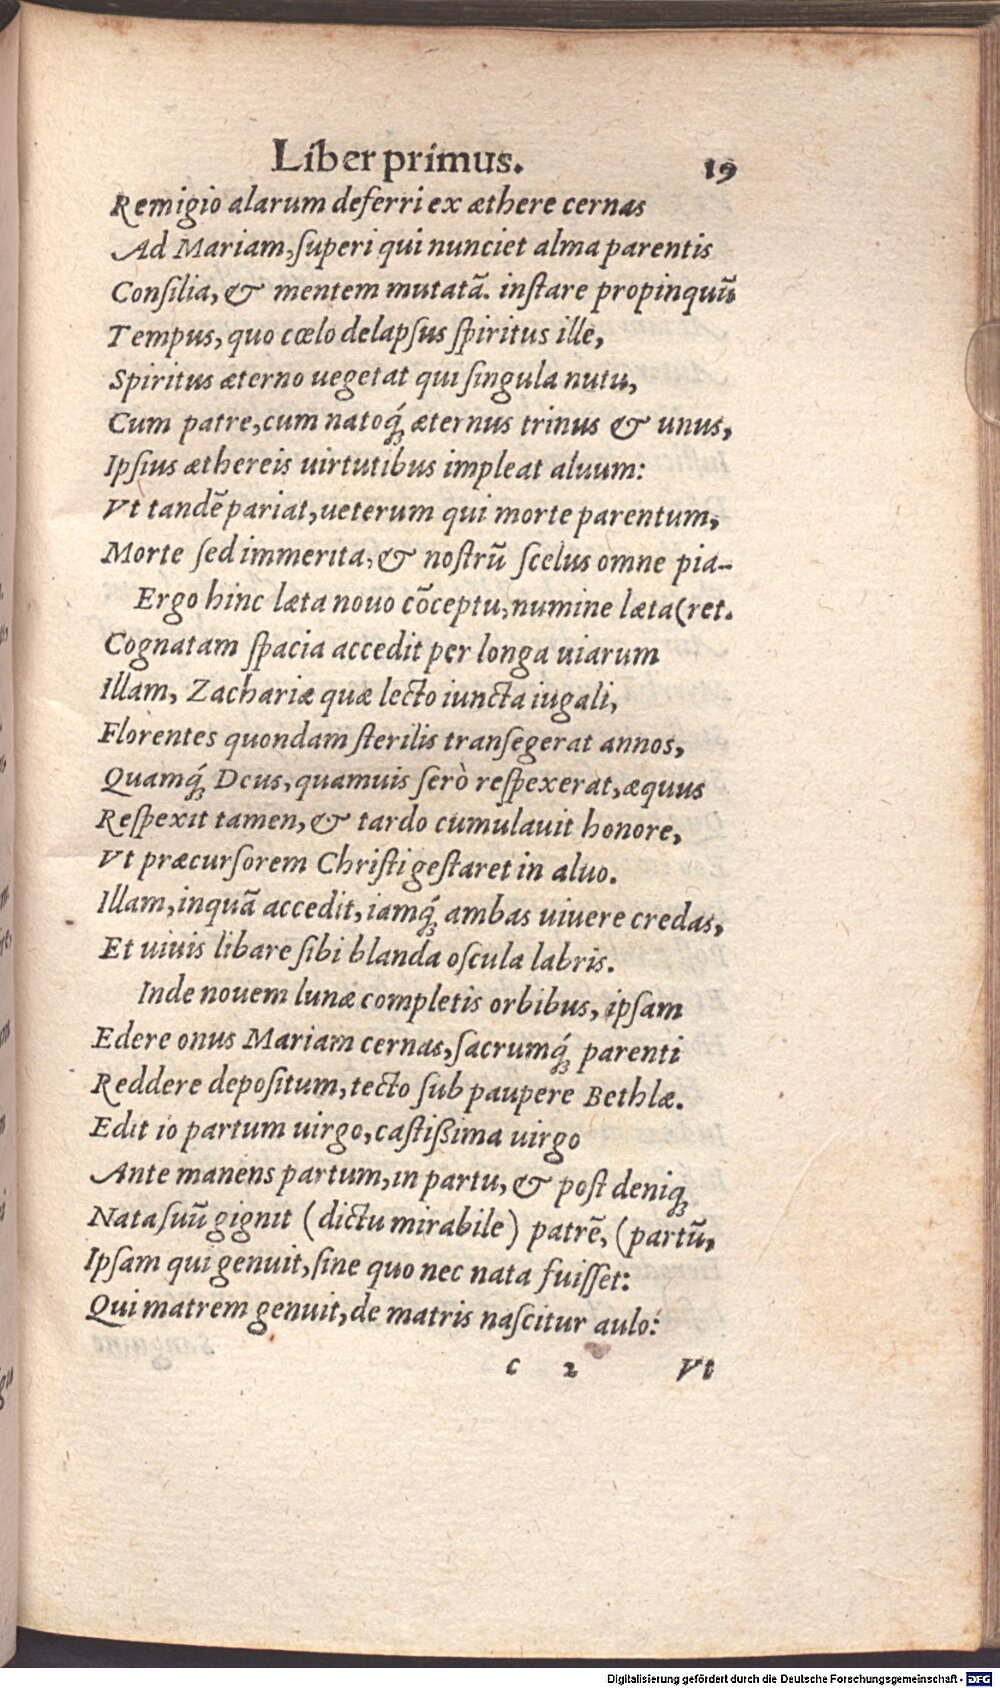 Liber primus. 19
Remigio alarum deferri ex æthere cernas
Ad Mariam, ſuperi qui nunciet alma parentis
Conſilia, & mentem mutatã. inſtare propinquũ
Tempus, quo cœlo delapſus ſpiritus ille,
Spiritus æterno uegetat qui ſingula nutu,
Cum patre, cum natoq́; æternus trinus & unus,
Ipſius æthereis uirtutibus impleat aluum:
Vt tandẽ pariat, ueterum qui morte parentum,
Morte ſed immerita, & noſtrũ ſcelus omne pia-
Ergo hinc læta nouo cõceptu, numine læta (ret.
Cognatam ſpacia accedit per longa uiarum
Illam, Zachariæ quæ lecto iuncta iugali,
Florentes quondam ſterilis tranſegerat annos,
Quamq́; Deus, quamuis ſerò reſpexerat, æquus
Reſpexit tamen, & tardo cumulauit honore,
Vt præcurſorem Chriſti geſtaret in aluo.
Illam, inquã accedit, iamq́; ambas uiuere credas,
Et uiuis libare ſibi blanda oſcula labris.
Inde nouem lunæ completis orbibus, ipſam
Edere onus Mariam cernas, ſacrumq́; parenti
Reddere depoſitum, tecto ſub paupere Bethlæ.
Edit io partum uirgo, caſtißima uirgo
Ante manens partum, in partu, & poſt deniq;
Nata ſuũ gignit (dictu mirabile) patrẽ, (partũ,
Ipſam qui genuit, ſine quo nec nata fuiſſet:
Qui matrem genuit, de matris naſcitur aulo:
c 2 Vt
Digitalisierung gefördert durch die Deutsche Forschungsgemeinschaft - DFG